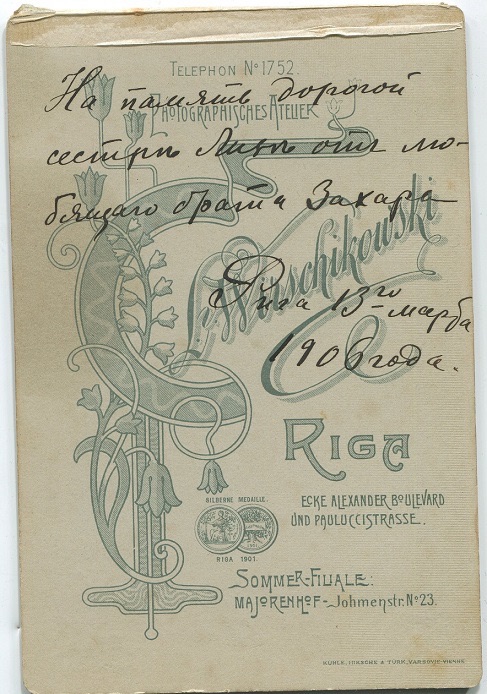 TELEPHON No 1752.
На память дорогой
PHOTOGRAPHISCHES ATELIER
сестрѣ отъ лю-
бящаго брата Захара
Рига 13го марта
1906 года.
RIGA
ECKE ALEXANDER BOULEVARD
UND PAULUCCISTRASSE.
SILBERNE MEDAILLE.
RIGA 1901.
SOMMER-FILIALE:
MAJORENHOF-Johmenstr. No 23.
KUHLE, MIKSCHE & TÜRK, VARSOVIE-VIENNE